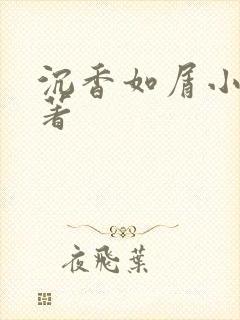 沉香如屑小
著
夜飛葉